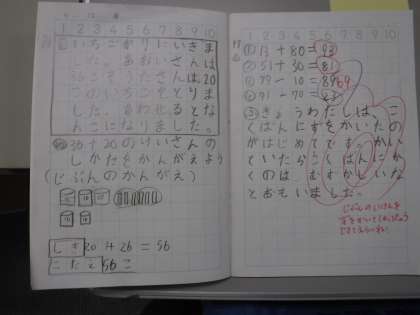 1 2 3 4 5 6 7 8 9 10
いちごがりにいきま
した。あおいさんは
36こそうたさんは20
このいちごをとりま
した。あわせるとな
んこになりました。
36+20のけいさんの
しかたをかんがえよう
(じぶんのかんがえ)
10 10 10
10 10
しき 20+36=56
こたえ 56こ
1 2 3 4 5 6 7 8 9 10
① 13+80=93
② 51+30=81
③ 79-10=69
④ 91-70=
きょうわたしは、こ
くばんにずをかいたの
がはじめてです。かい
ていたらこくばんにか
くのは、むずかしいな
とおもいました。
じぶんの